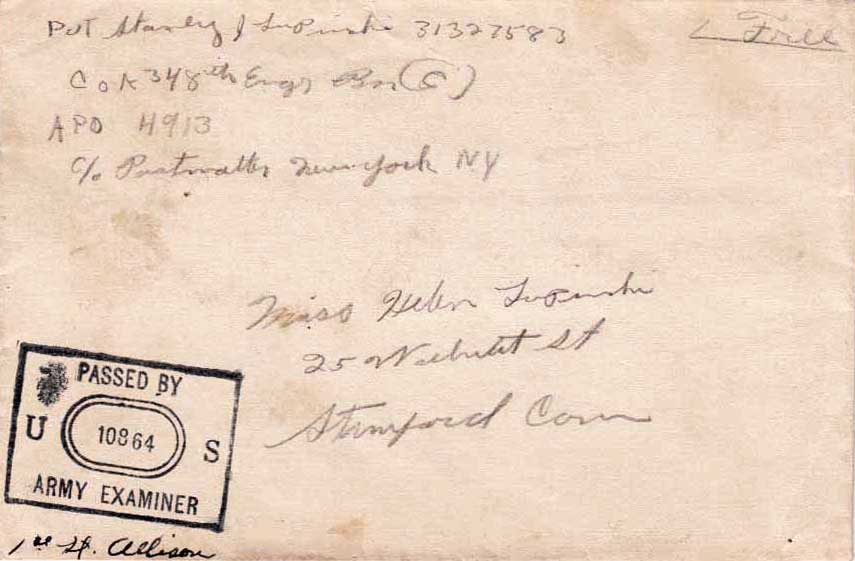 Pvt Stanley J Lupinski 31327583
Free
Co A 348th Engr Bn (C)
APO 4913
c/o Postmaster New York NY
Miss Helen Lupinski
25 Walnut St
Stamford Conn
PASSED BY
U 10864 S
ARMY EXAMINER
1st Lt. Allison